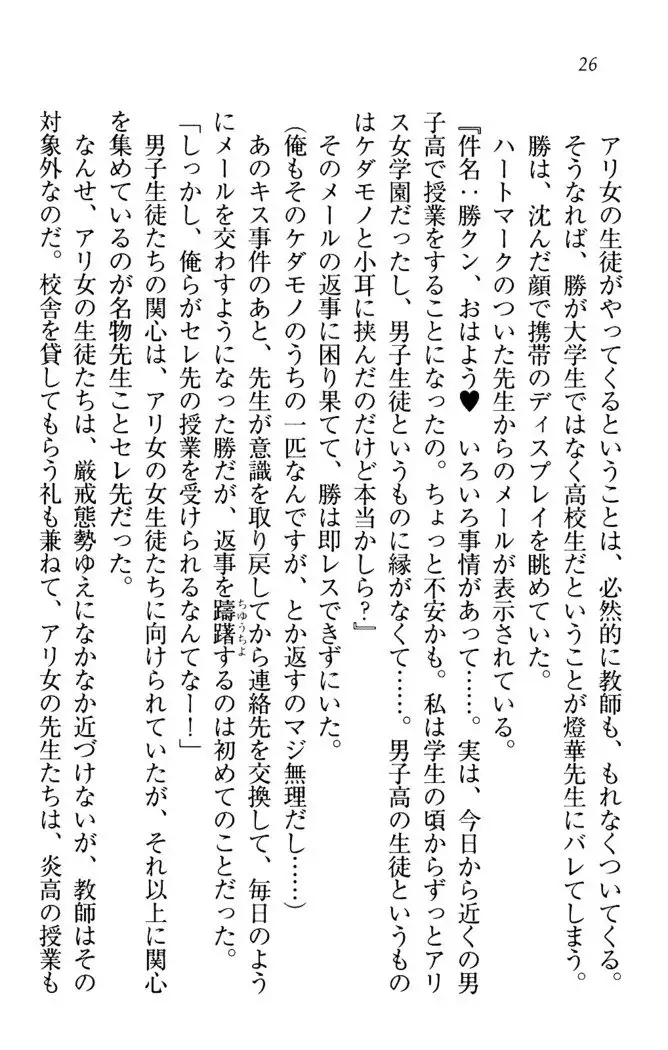 26
アリ女の生徒がやってくるということは、必然的に教師も、もれなくついてくる。
そうなれば、勝が大学生ではなく高校生だということが燈華先生にバレてしまう。
勝は、沈んだ顔で携帯のディスプレイを眺めていた。
ハートマークのついた先生からのメールが表示されている。
『件名：勝クン、おはよう♥　いろいろ事情があって……。実は、今日から近くの男
子高で授業をすることになったの。ちょっと不安かも。私は学生の頃からずっとアリ
ス女学園だったし、男子生徒というものに縁がなくて……。男子高の生徒というもの
はケダモノと小耳に挟んだのだけど本当かしら？』
そのメールの返事に困り果てて、勝は即レスできずにいた。
(俺もそのケダモノのうちの一匹なんですが、とか返すのマジ無理だし……)
あのキス事件のあと、先生が意識を取り戻してから連絡先を交換して、毎日のよう
にメールを交わすようになった勝だが、返事を躊躇するのは初めてのことだった。
ちゅうちょ
「しっかし、俺らがセレ先の授業を受けられるなんてなー！」
男子生徒たちの関心は、アリ女の女生徒たちに向けられていたが、それ以上に関心
を集めているのが名物先生ことセレ先だった。
なんせ、アリ女の生徒たちは、厳戒態勢ゆえになかなか近づけないが、教師はその
対象外なのだ。校舎を貸してもらう礼も兼ねて、アリ女の先生たちは、炎高の授業も